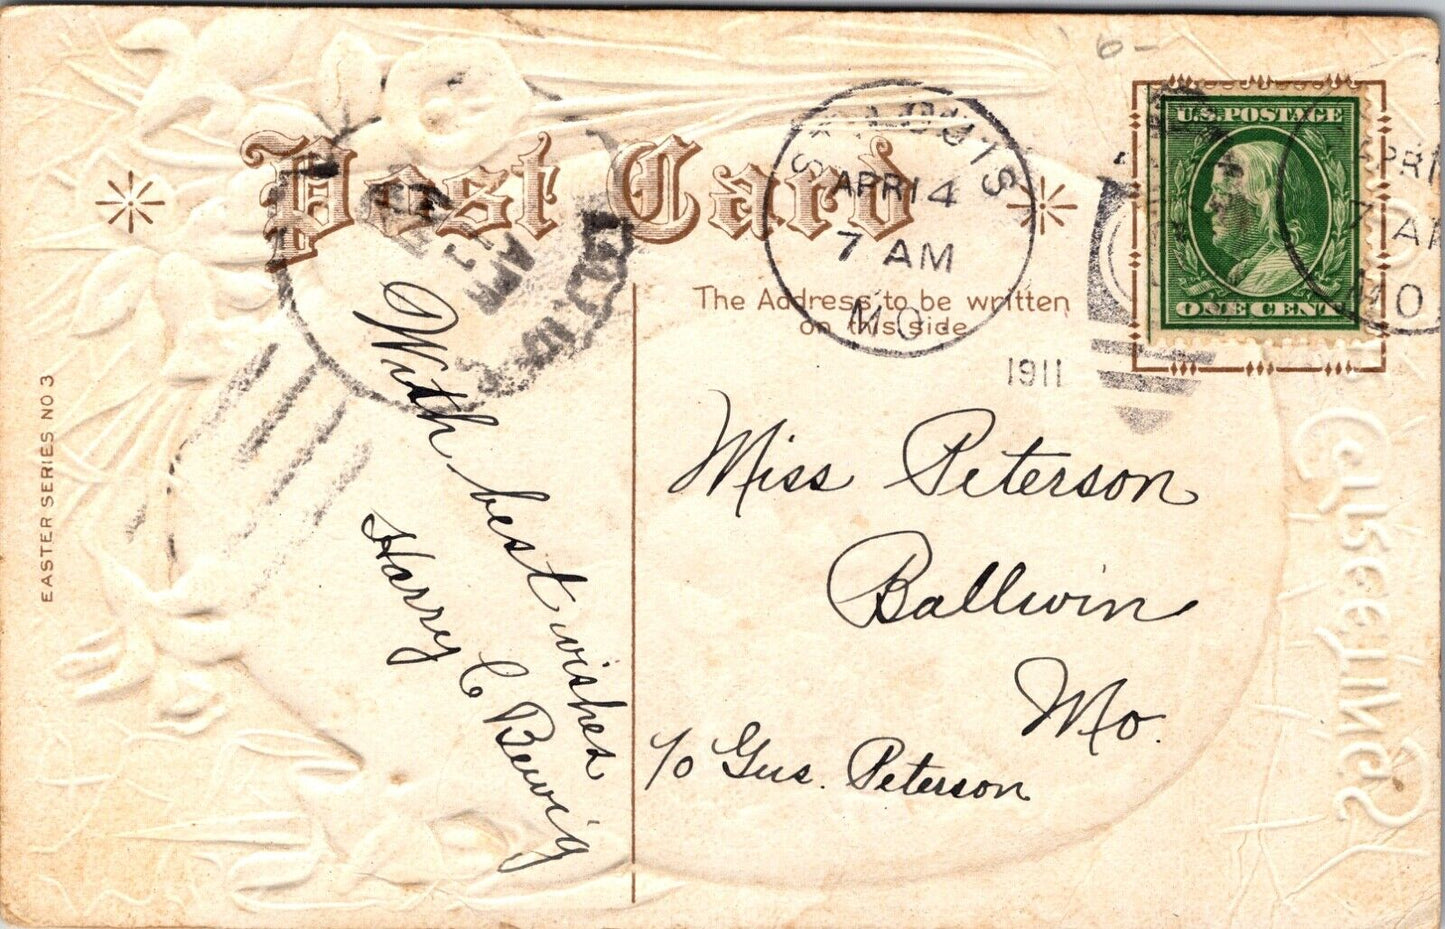 Post Card
The Address to be written
on this side
EASTER SERIES NO 3
ST. LOUIS
APR 14
7 AM
MO.
1911
U.S. POSTAGE
ONE CENT
APR 1
7 AM
MO
With best wishes
Harry C Bewig
Miss Peterson
Ballwin
Mo.
c/o Gus. Peterson